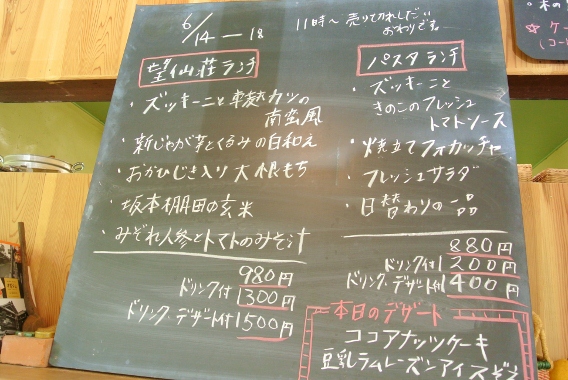 6/14ー18
11時〜 売り切れしだい
おわりです
望仙荘ランチ
・ズッキーニと車麩カツの
南蛮風
・新じゃが芋とくるみの白和え
・おかひじき入り大根もち
・坂本棚田の玄米
・みぞれ人参とトマトのみそ汁
980円
ドリンク付1300円
ドリンク・デザート付1500円
パスタランチ
・ズッキーニと
きのこのフレッシュ
トマトソース
・焼立てフォカッチャ
・フレッシュサラダ
・日替わりの一品
880円
ドリンク付1200円
ドリンク・デザート付1400円
本日のデザート
ココアナッツケーキ
豆乳ラムレーズンアイスぞえ